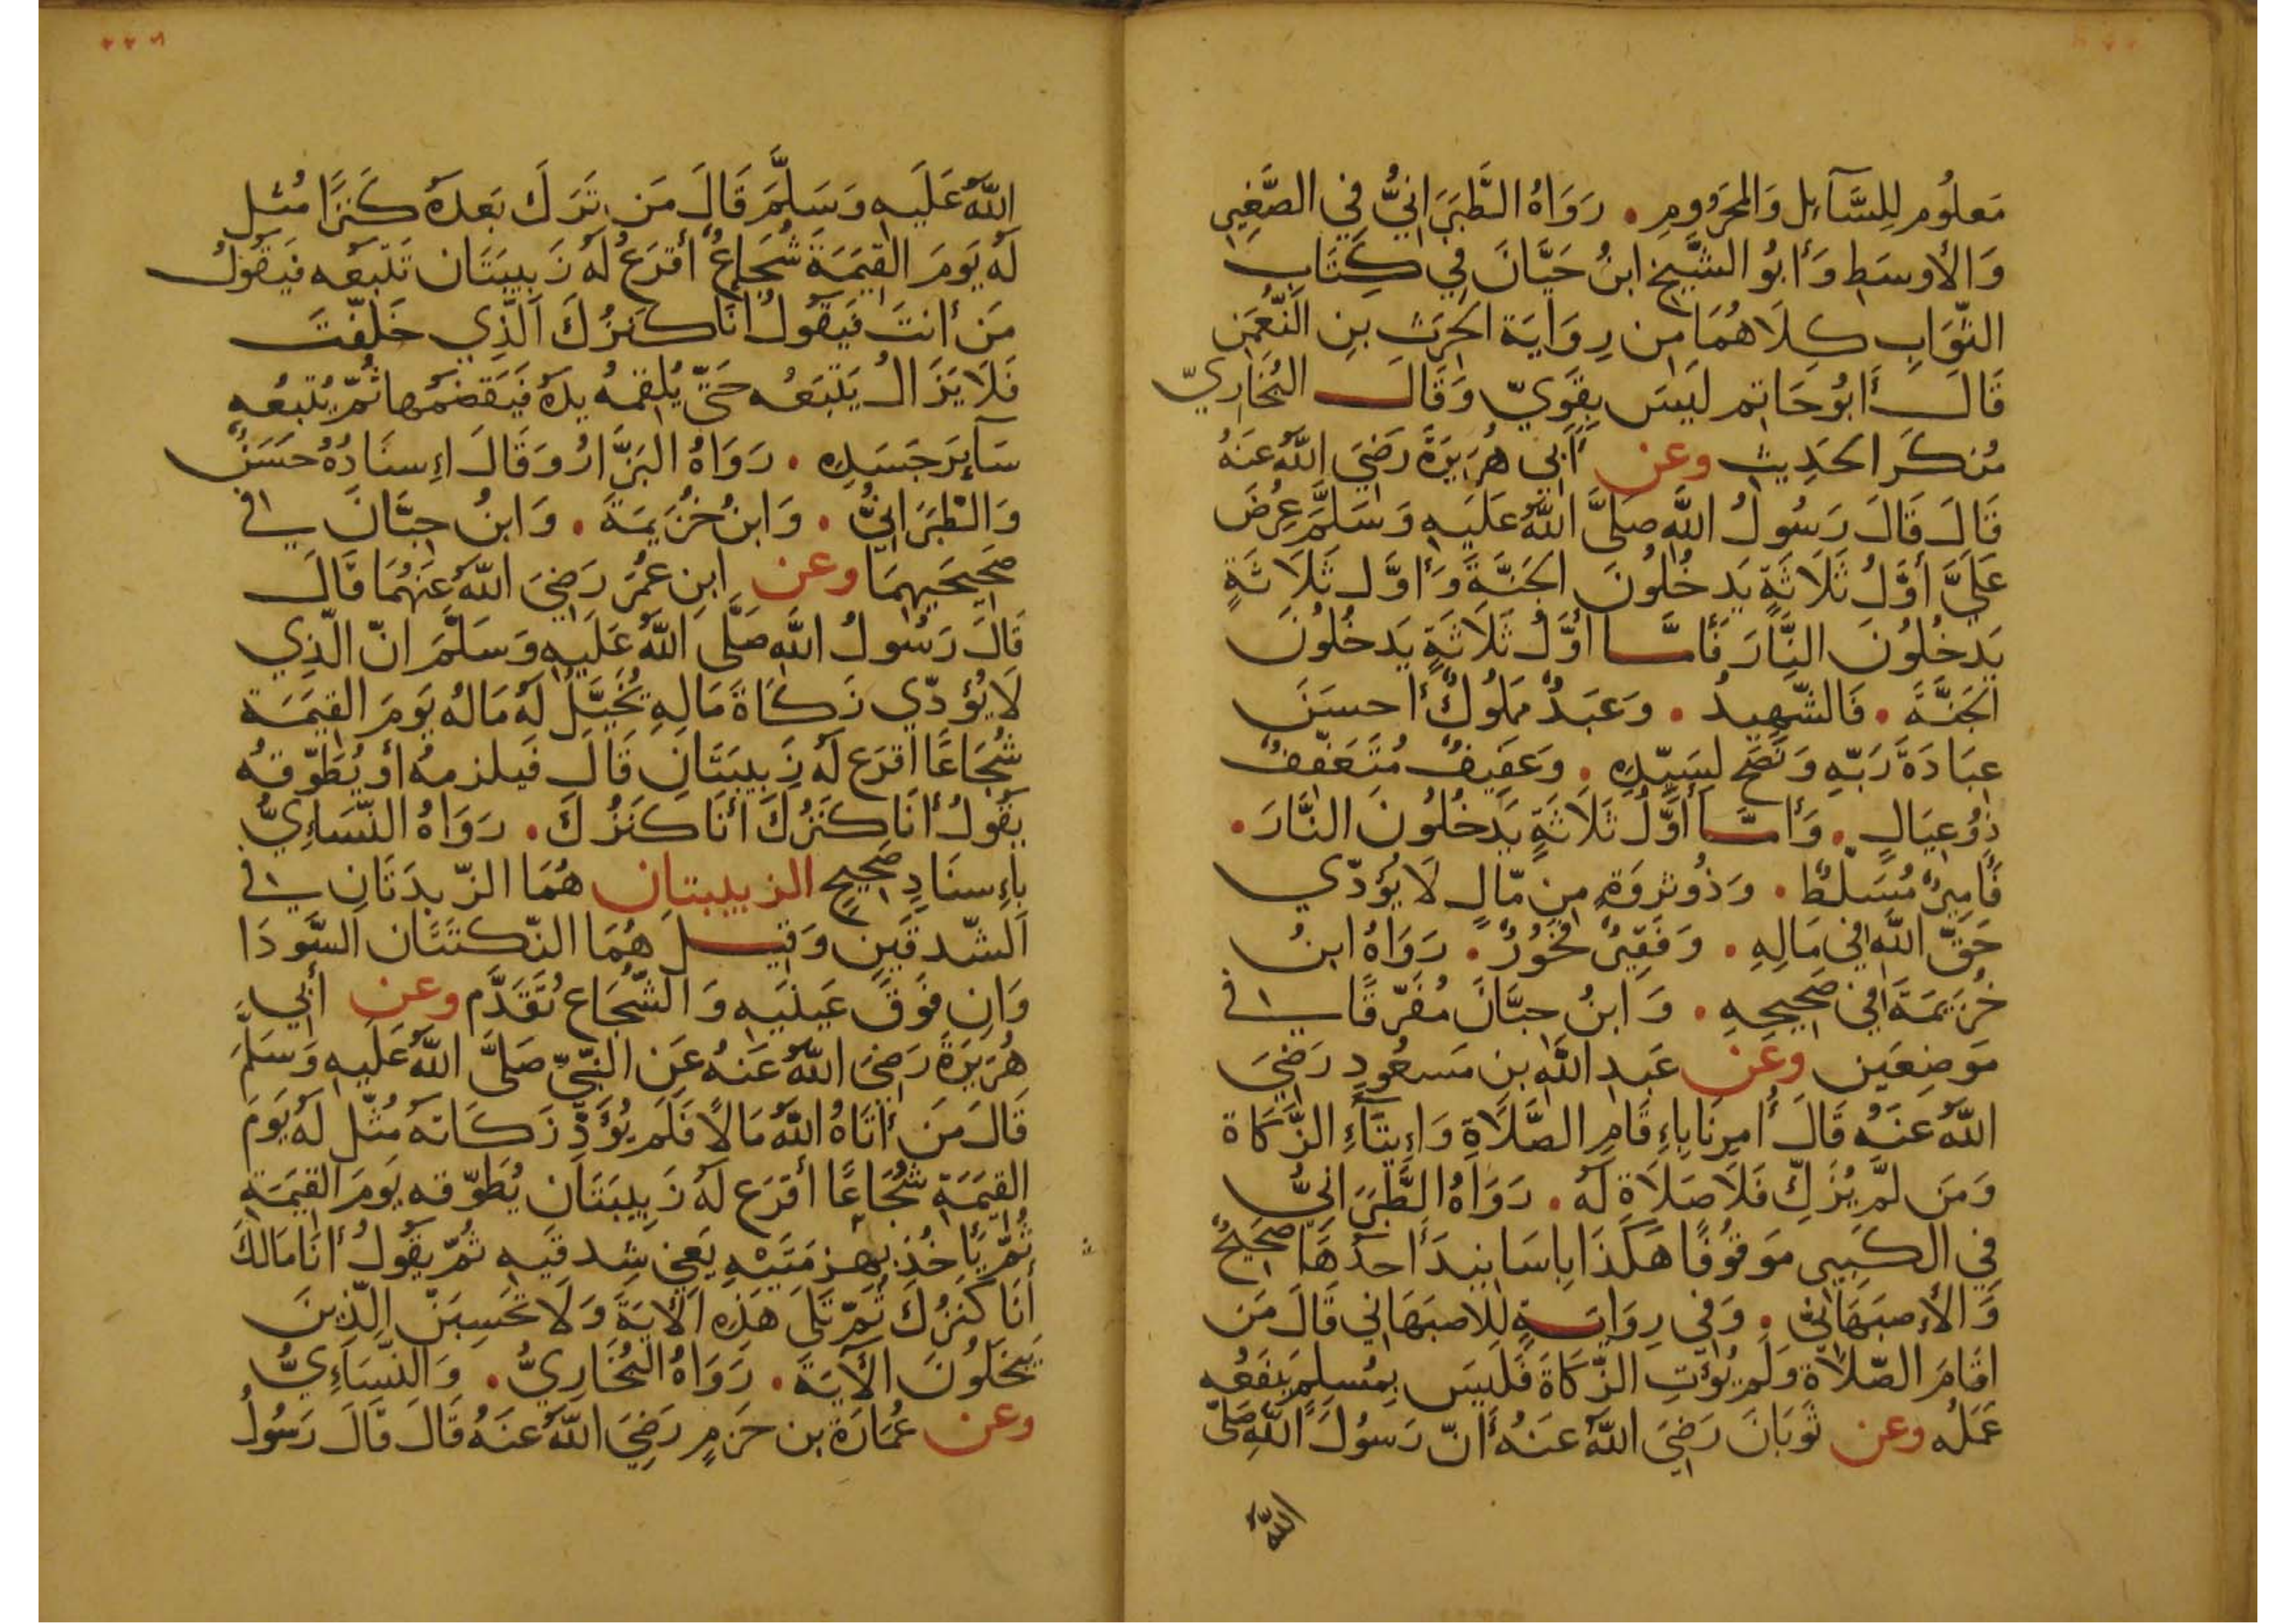 مَعلُوم لِلسَّآئِل وَالمَحرُومِ . رَوَاهُ الطَّبَرَانِيُّ فِي الصَّغِير
وَالأوسَطِ وَأبُو الشَّيخ ابنُ حَيَّانَ فِي كِتَاب
الثَّوَابِ كِلَاهُمَا مِن رِوَايَة الحٰرِث بنِ النُّعمٰن
قَالَ أَبُو حَاتِم لَيسَ بِقَوِيّ وَقَالَ البُخَارِيّ
مُنكَر الحَدِيث وعن أبِي هُرَيرَةَ رَضِيَ اللّٰهُ عَنهُ
قَالَ قَالَ رَسُولُ اللّٰهِ صَلَّى اللّٰهُ عَلَيهِ وَسَلَّمَ عُرِضَ
عَلَيَّ أوَّلُ ثَلَاثَةٍ يَدخُلُونَ الجَنَّةَ وَأوَّل ثَلَاثَةٍ
يَدخُلُونَ النَّارَ فَأمَّا أوَّلُ ثَلَاثَةٍ يَدخُلُونَ
الجَنَّةَ . فَالشَّهِيدُ . وَعَبدٌ مَملُوكٌ أحسَنَ
عِبَادَةَ رَبِّهِ وَنَصَحَ لِسَيِّدِهِ . وَعَفِيفٌ مُتَعَفِّفٌ
ذُو عِيَالٍ . وَأمَّا أوَّلُ ثَلَاثَةٍ يَدخُلُونَ النَّارَ .
فَأمِيرٌ مُسَلَّطٌ . وَذُو ثَروَةٍ مِن مَّالٍ لَا يُؤَدِّي
حَقَّ اللّٰهِ فِي مَالِهِ . وَفَقِيرٌ فَخُورٌ . رَوَاهُ ابنُ
خُزَيمَةَ فِي صَحِيحِهِ . وَابنُ حِبَّانَ مُفَرَّقًا فِي
مَوضِعَين وعَن عَبدِ اللّٰهِ بنِ مَسعُودٍ رَضِيَ
اللّٰهُ عَنهُ قَالَ أُمِرنَا بِإقَامِ الصَّلَاةِ وَإِيتَآءِ الزَّكَاة
وَمَن لَّم يُزَكِّ فَلَا صَلَاةَ لَهُ . رَوَاهُ الطَّبَرَانِيُّ
فِي الكَبِير مَوقُوفًا هٰكَذَا بِاسَانِيدَ أحدُهَا صَحِيحٌ
وَالأصبَهَانِيُّ . وَفِي رِوَايَةٍ لِلاصبَهَانِي قَالَ مَن
اقَامَ الصَّلَاة وَلَم يُؤتِ الزَّكَاةَ فَلَيسَ بِمُسلِمٍ يَنفَعُه
عَمَلُه وعن ثَوبَانَ رَضِيَ اللّٰهُ عَنهُ أنّ رَسُولَ اللّٰهِ صَلَّى
اللّٰهُ
٢٢٦
اللّٰهُ عَلَيهِ وَسَلَّمَ قَالَ مَن تَرَكَ بَعدَهُ كَنزًا مُثِّل
لَهُ يَومَ القِيٰمَةِ شُجَاعٌ أقرَعُ لَهُ زَبِيبَتَان تَتبَعُه فَيَقُولُ
مَن أنتَ فَيَقُولُ أنَا كَنزُكَ الَّذِي خَلَّفتَ
فَلَا يَزَالُ يَتبَعُه حَتَّى يُلقِمهُ يدَهُ فَيَقضَمُها ثُمَّ يُتبِعُه
سَآئِرَ جَسَدِهِ . رَوَاهُ البَزَّارُ وَقَالَ إِسنَادُهُ حَسَنٌ
وَالطَّبَرَانِيُّ . وَابنُ خُزَيمَةَ . وَابنُ حِبَّانَ فِي
صَحِيحَيهِمَا وعن ابنِ عُمَرَ رَضِيَ اللّٰهُ عَنهُمَا قَالَ
قَالَ رَسُولُ اللّٰهِ صَلَّى اللّٰهُ عَلَيهِ وَسَلَّمَ انّ الَّذِي
لَا يُؤَدِّي زَكَاةَ مَالِهِ يُخَيَّلُ لَهُ مَالُهُ يَومَ القِيٰمَة
شُجَاعًا اقرَع لَهُ زَبِيبَتَانِ قَالَ فَيَلزمهُ أو يُطَوِّقهُ
يَقُولُ أنَا كَنزُكَ أنَا كَنزُكَ . رَوَاهُ النَّسَاءِيُّ
بِإِسنَادٍ صَحِيحٍ الزبيبتان هُمَا الزَّبدَتَانِ فِي
الشِّدقَينِ وَقِيلَ هُمَا النُّكتَتَان السَّودَا
وَانِ فَوقَ عَينَيهِ وَالشُّجَاع تَقَدَّم وعن أبِي
هُرَيرَةَ رَضِيَ اللّٰهُ عَنهُ عَنِ النَّبِيِّ صَلَّى اللّٰهُ عَلَيهِ وَسَلَّمَ
قَالَ مَن أتَاهُ اللّٰهُ مَالًا فَلَم يُؤَدِّ زَكَاتهُ مُثِّل لَهُ يَومَ
القِيٰمَةِ شُجَاعًا أقرَع لَهُ زَبِيبَتَان يُطَوِّقه يَومَ القِيٰمَةِ
ثُمَّ يَأخُذُ بِهزمَتَيْهِ يَعنِي شِدقَيهِ ثُمَّ يَقُولُ أنَا مَالكَ
أنَا كَنزُكَ ثُمَّ تَلَى هٰذِهِ الآيَةَ وَلَا تَحسِبَنَّ الَّذِينَ
يَبخَلُونَ الآيَةَ . رَوَاهُ البُخَارِيُّ . وَالنَّسَاءِيُّ
وعن عُمَارَةَ بن حَزمٍ رَضِيَ اللّٰهُ عَنهُ قَالَ قَالَ رَسُولُ